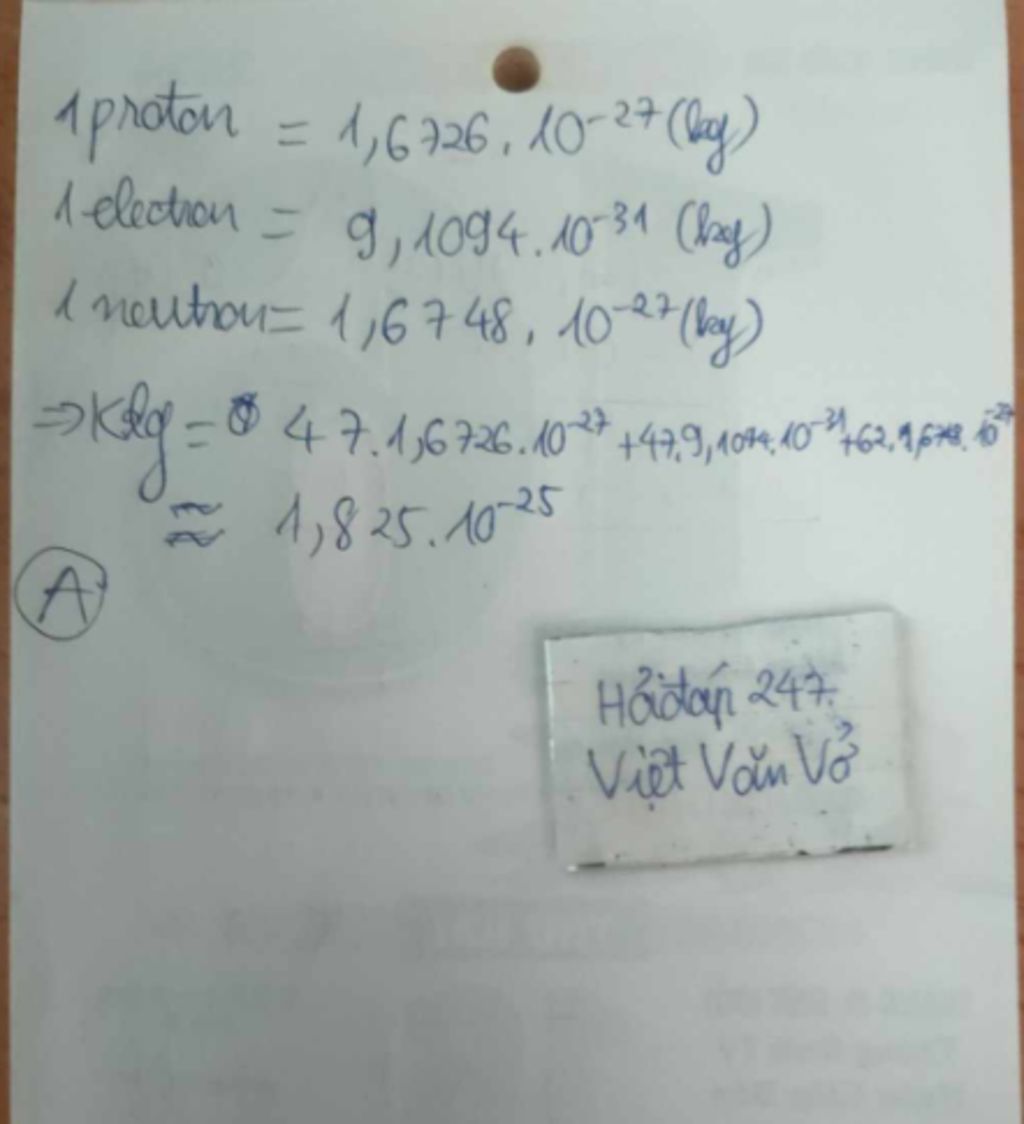 1 proton = 1,6726.10⁻²⁷ (kg)
1 electron = 9,1094.10⁻³¹ (kg)
1 neutron = 1,6748.10⁻²⁷ (kg)
⇒ KAg = 47.1,6726.10⁻²⁷ + 47.9,1094.10⁻³¹ + 62.1,6748.10⁻²⁷
≈ 1,825.10⁻²⁵
A
Hỏiđáp 247.
Việt Văn Vở